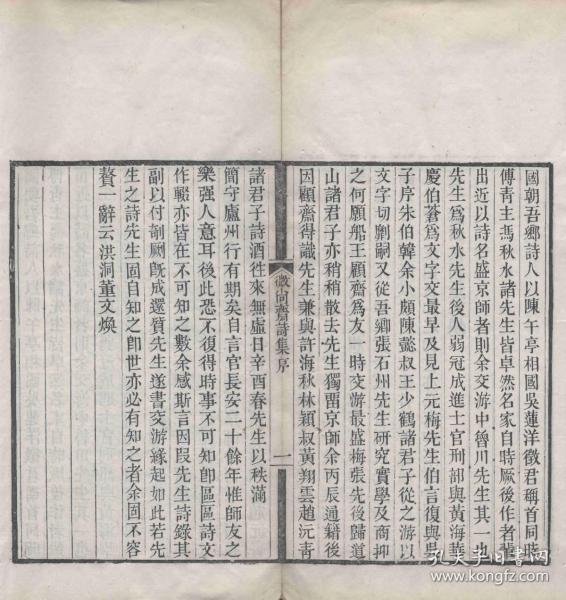 國朝吾鄉詩人以陳午亭相國吳蓮洋徵君稱首同時
傅青主馮秋水諸先生皆卓然名家自時厥後作者輩
出近以詩名盛京師者則余交游中魯川先生其一也
先生爲秋水先生後人弱冠成進士官刑部與黃海華
慶伯蒼爲文字交最早及見上元梅先生伯言復與吳
子序朱伯韓余小頗陳懿叔王少鶴諸君子從之游以
文字切劘嗣又從吾鄉張石州先生研究實學及商抑
之何願船王顧齋爲友一時交游最盛梅張先後歸道
山諸君子亦稍稍散去先生獨畱京師余丙辰通籍後
因顧齋得識先生兼與許海秋林穎叔黃翔雲趙沅青
微尚齋詩集序
一
諸君子詩酒往來無虛日辛酉春先生以秩滿
簡守廬州行有期矣自言官長安二十餘年惟師友之
樂强人意耳後此恐不復得時事不可知卽區區詩文
作輟亦皆在不可知之數余感斯言因叚先生詩錄其
副以付剞劂旣成還質先生遂書交游緣起如此若先
生之詩先生固自知之卽世亦必有知之者余固不容
贅一辭云洪洞董文煥
孔夫子旧书网
www.kongfz.com